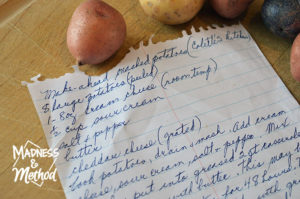 Make-ahead mashed potatoes
8 large potatoes (peeled)
1- 8oz cream cheese (room temp)
1/2 cup sour cream
salt & pepper
butter
cheddar cheese (grated)
Cook potatoes, drain & mash. Add cream
cheese, sour cream, salt & pepper. Mix
put into greased
with butter. This may
for 48 hours.
MADNESS
& Method